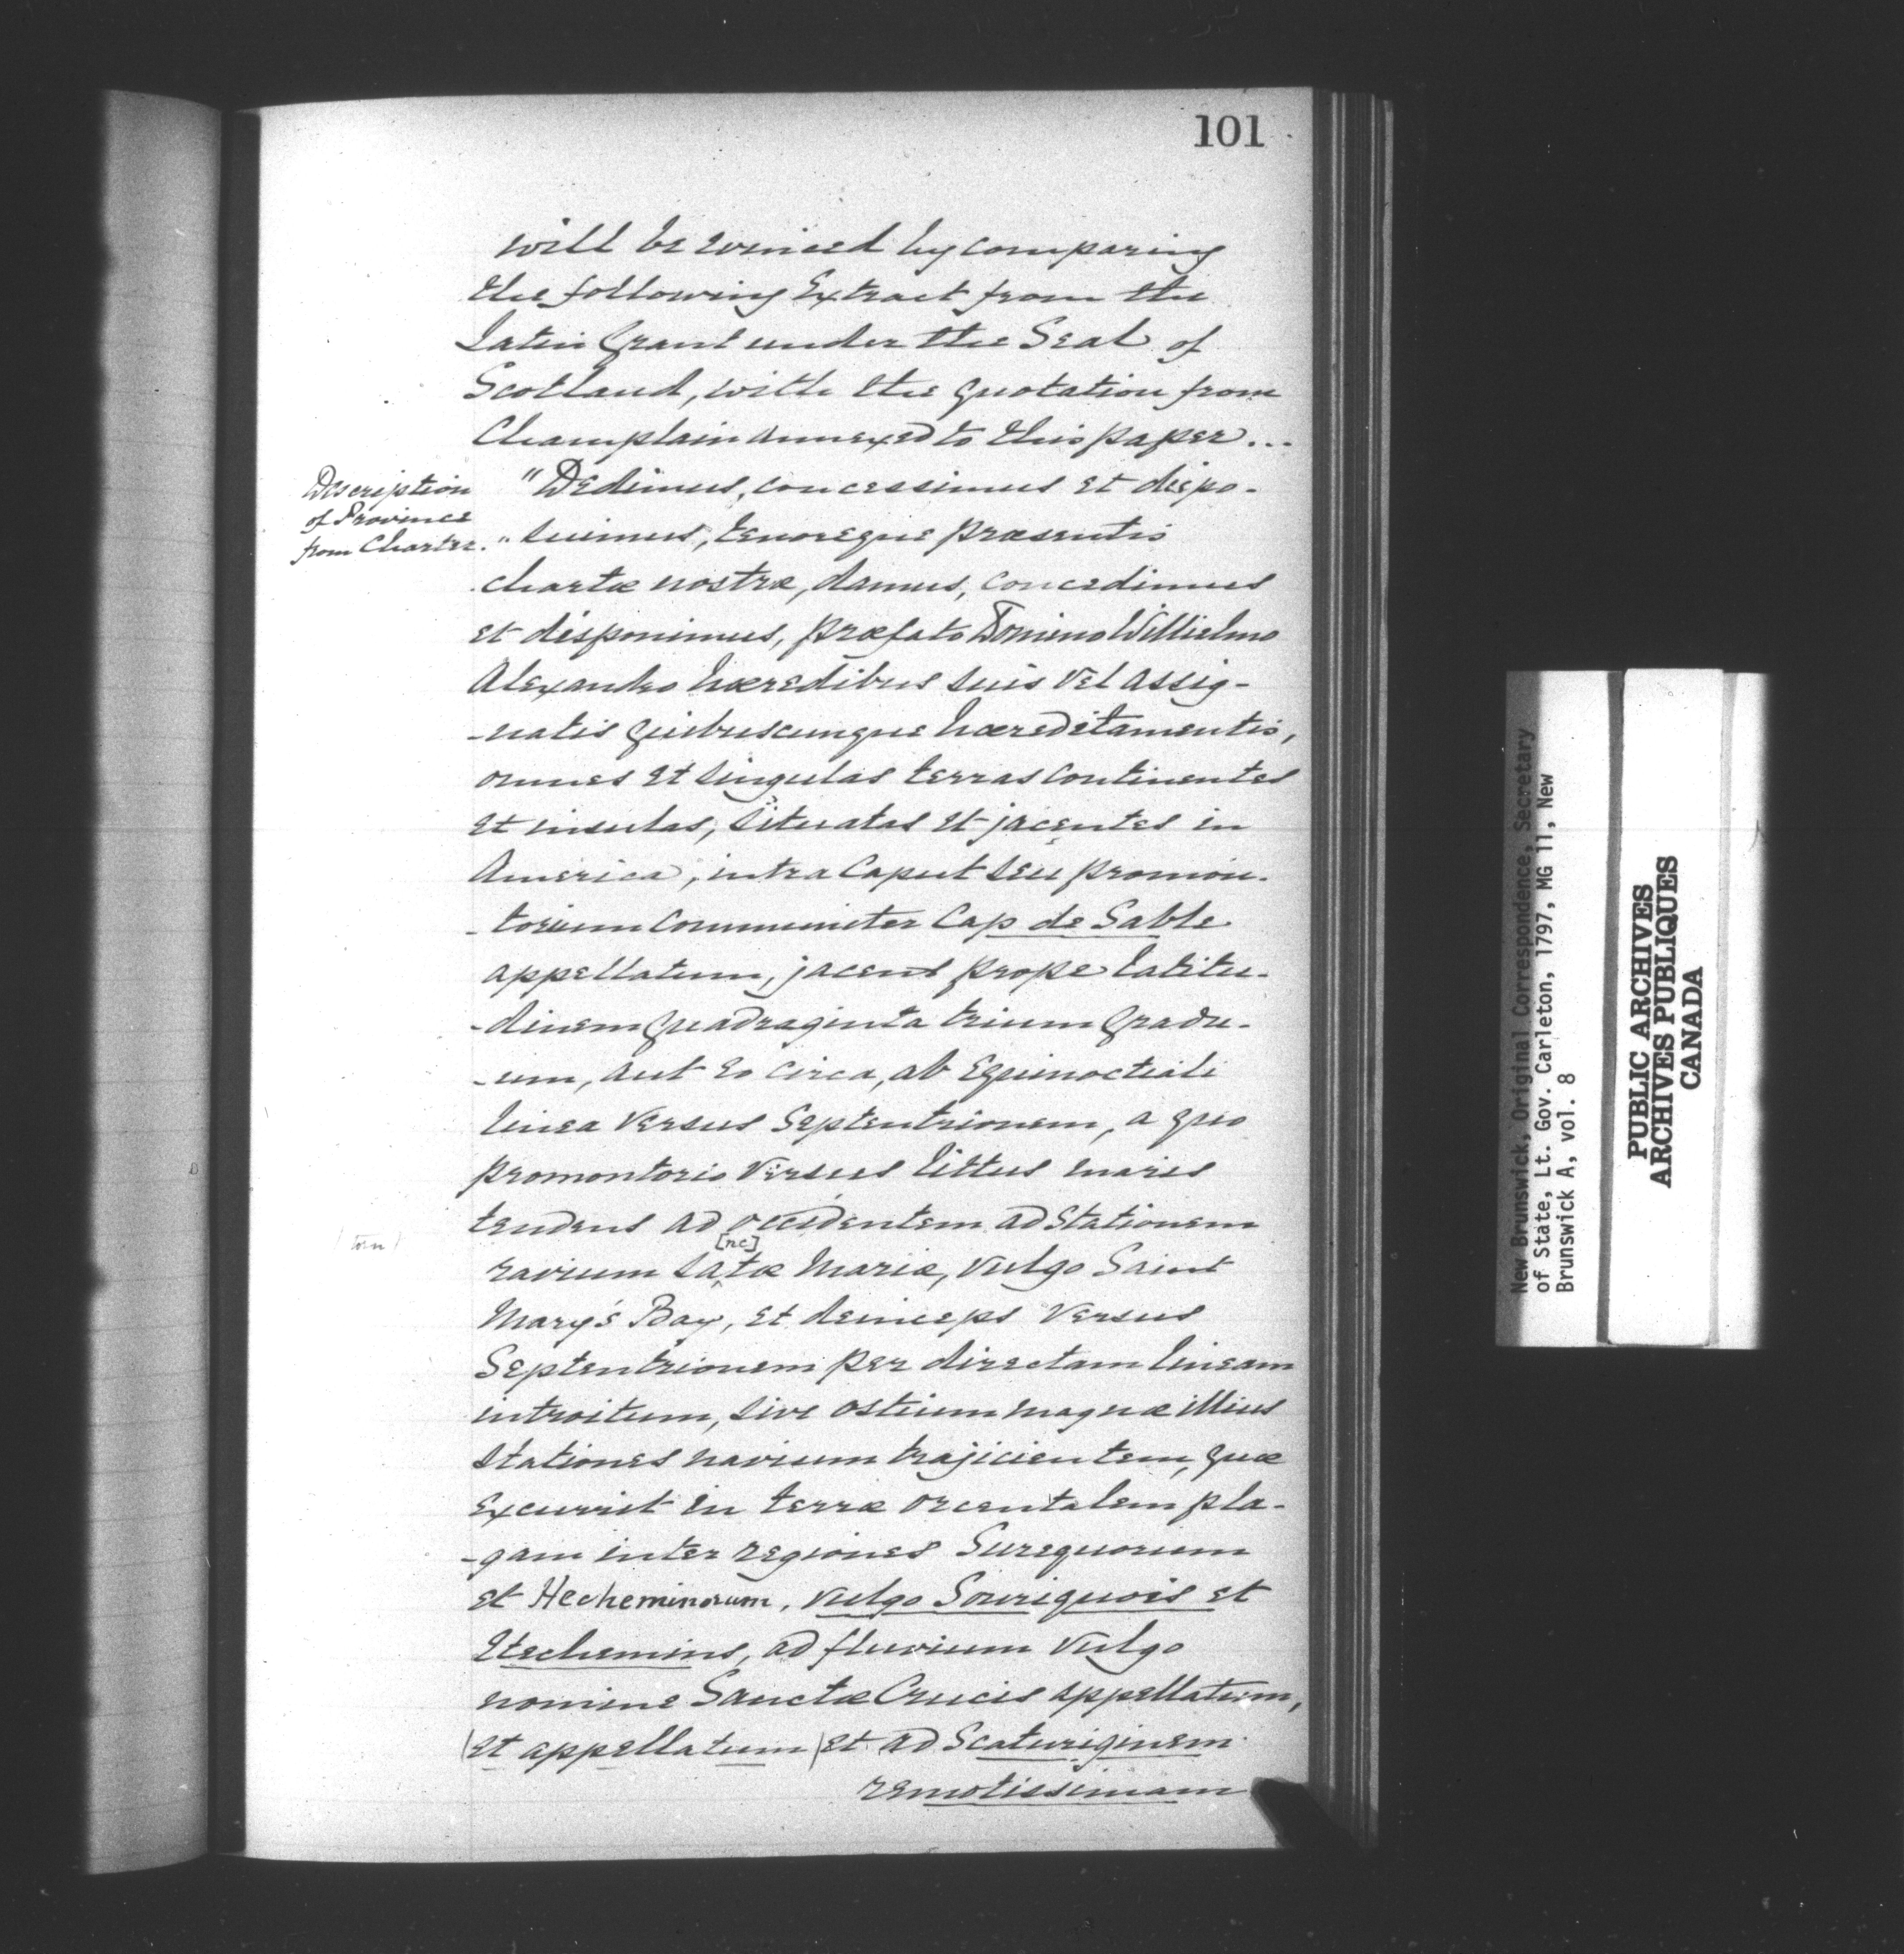 101
will be evinced by comparing
the following Extract from the
Latin Grant under the Seal of
Scotland, with the quotation from
Champlain annexed to this paper...
Description
of Province
from Charter.
"Dedimus, concessimus et dispo-
"suimus, tenoreque præsentis
chartæ nostræ, damus, concedimus
et disponimus, præfato Domino Willielmo
Alexandro hæredibus suis vel assig-
-natis quibuscunque hæreditamentis,
omnes et singulas terras continentes
et insulas, situatas et jacentes in
America, intra Caput seu promon-
-torium communiter Cap de Sable
appellatum, jacens prope latitu-
-dinem quadraginta trium gradu-
-um, aut eo circa, ab Equinoctiali
linea versus Septentrionem, a quo
promontorio versus littus maris
tendens ad occidentem ad Stationem
navium Sa[nc]tæ Mariæ, vulgo Saint
Mary's Bay, et deinceps versus
Septentrionem per directam lineam
introitum, sive ostium magnæ illius
stationes navium trajicientem, quæ
excurrit in terræ orcentalem pla-
-gam inter regiones Surequorum
et Hecheminorum, vulgo Souriquois et
Etechemins, ad fluvium vulgo
nomine Sanctæ Crucis appellatum,
(et appellatum) et ad Scaturiginem
remotissimam
New Brunswick, Original Correspondence, Secretary
of State, Lt. Gov. Carleton, 1797, MG 11, New
Brunswick A, vol. 8
PUBLIC ARCHIVES
ARCHIVES PUBLIQUES
CANADA